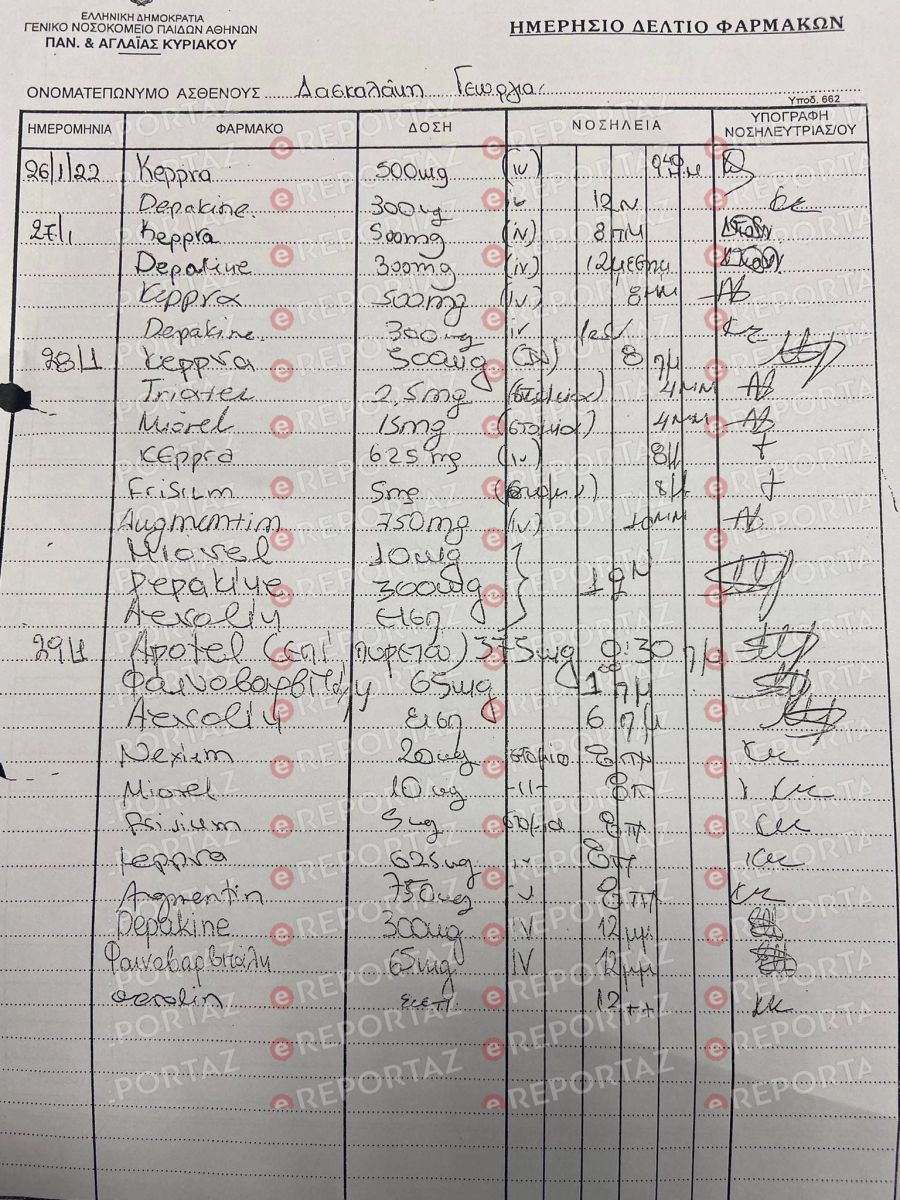 ΕΛΛΗΝΙΚΗ ΔΗΜΟΚΡΑΤΙΑ
ΓΕΝΙΚΟ ΝΟΣΟΚΟΜΕΙΟ ΠΑΙΔΩΝ ΑΘΗΝΩΝ
ΠΑΝ. & ΑΓΛΑΪΑΣ ΚΥΡΙΑΚΟΥ
ΗΜΕΡΗΣΙΟ ΔΕΛΤΙΟ ΦΑΡΜΑΚΩΝ
ΟΝΟΜΑΤΕΠΩΝΥΜΟ ΑΣΘΕΝΟΥΣ Δασκαλάκη Γεωργία
Υποδ. 662
ΗΜΕΡΟΜΗΝΙΑ ΦΑΡΜΑΚΟ ΔΟΣΗ ΝΟΣΗΛΕΙΑ ΥΠΟΓΡΑΦΗ ΝΟΣΗΛΕΥΤΡΙΑΣ/ΟΥ
26/1/22 Keppra 500mg (iv)
Depakine. 300mg iv 12
27/1 Keppra 500mg (iv) 8πμ
Depakine 300mg (iv) 12μεσημ
Keppra 500mg (iv) 8μμ
Depakine. 300mg iv
28/1 Keppra 500mg (IV) 8 πμ
Triatec 2,5mg 4μμ
Miorel 15mg (στομια) 4μμ
Keppra 625mg (iv) 8μ
Frisium 5mg 8μ
Augmentim 750mg (iv) 10μμ
Miorel 10mg
Depakine 300mg
Aerolin εισπ
29/1 Apotel (επί πυρετού) 375mg 0:30 π/μ
Φαινοβαρβιτάλη 65mg 1 00 π/μ
Aerolin εισπ 6 π/μ
Nexium 20mg στομα 8πμ
Miorel 10mg -||- 8π
Frisium 5mg στομα 8πμ
Keppra 625mg iv 8π
Augmentin 750mg iv 8πμ
Depakine 300mg IV 12μμ
Φαινοβαρβιτάλη 65mg IV 12μμ
aerolin εισπ. 12
eREPORTAZ